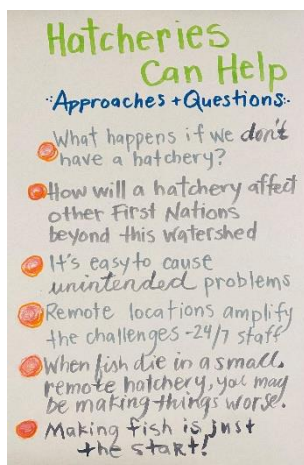 Hatcheries
Can Help
Approaches + Questions:
What happens if we don't
have a hatchery?
How will a hatchery affect
other First Nations
beyond this watershed
It's easy to cause
unintended problems
Remote locations amplify
the challenges - 24/7 staff
When fish die in a small,
remote hatchery, you may
be making things worse.
Making fish is just
the start!